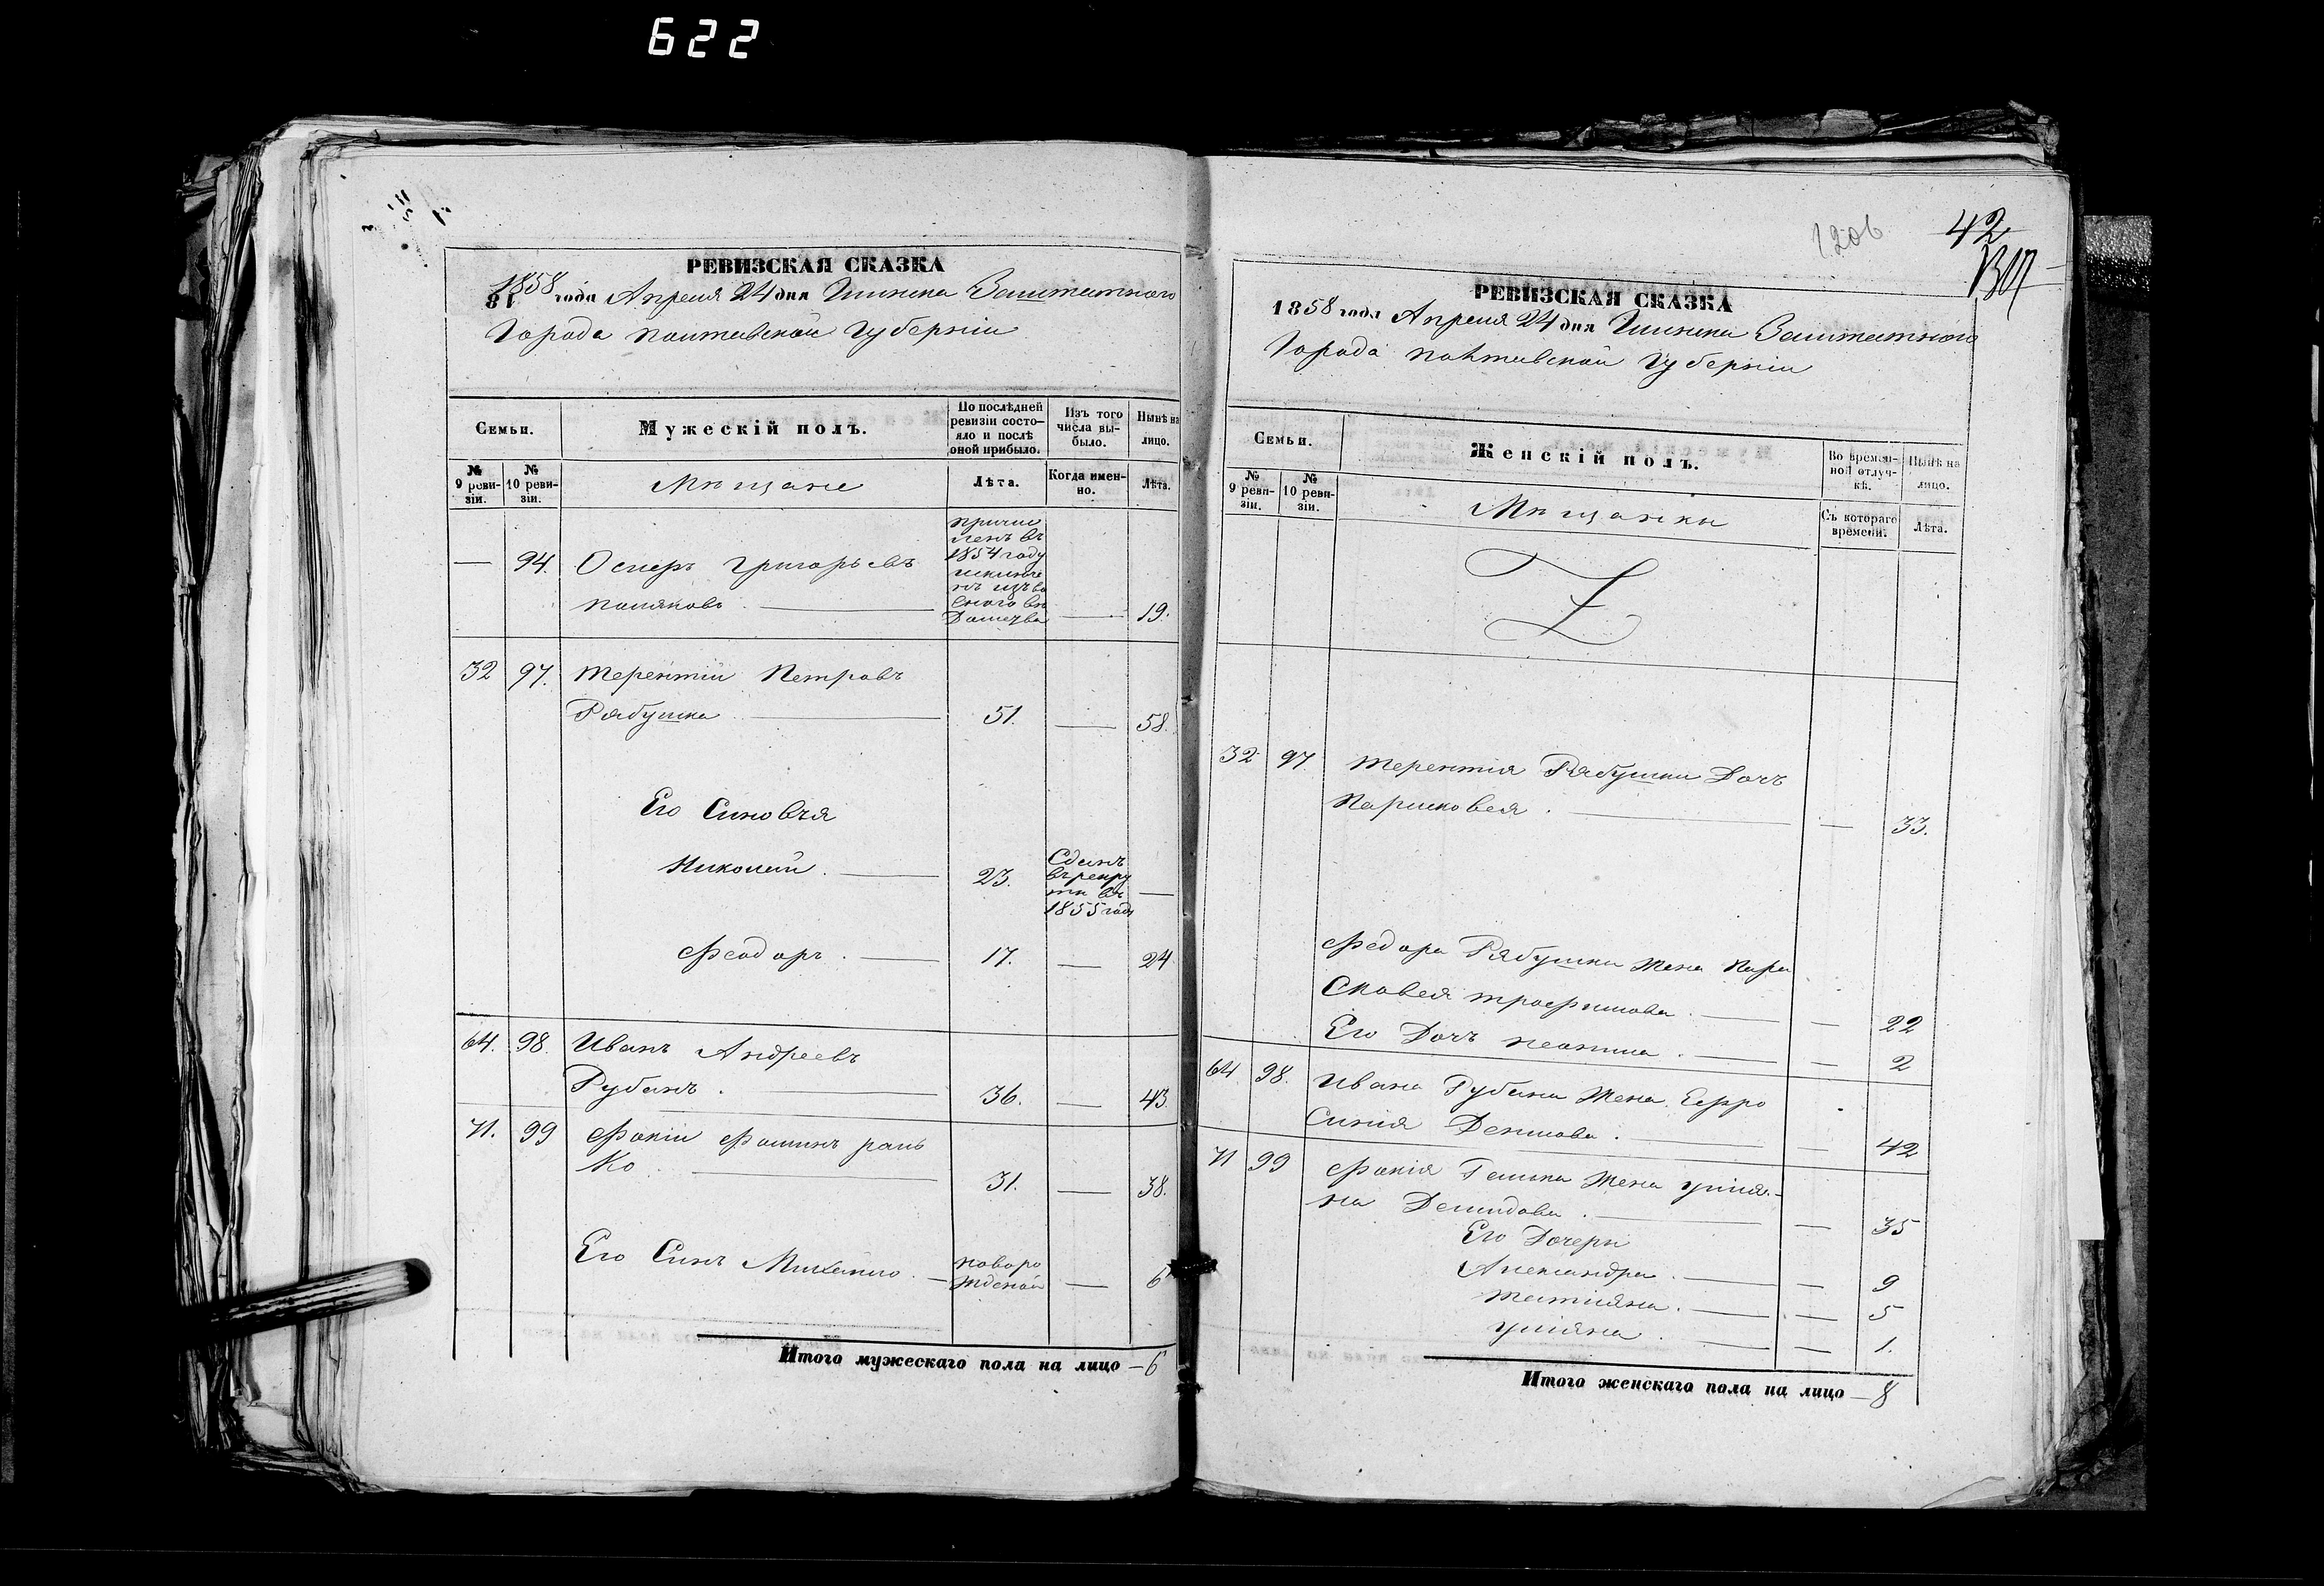 622
РЕВИЗСКАЯ СКАЗКА
1858 года Апреля 24 дня Глинска Заштатного
Города Полтавской Губерніи
Семьи.
Мужескій полъ.
По послѣдней ревизіи состояло и послѣ оной прибыло.
Изъ того числа выбыло.
Нынѣ на лицо.
№ 9 ревизіи.
№ 10 ревизіи.
Мѣщане
Лѣта.
Когда именно.
Лѣта.
— 94. Осипъ Григорьевъ
Поляковъ. — 19.
причи
ленъ въ
1854 году
32 97. Терентій Петровъ
Рябушка — 51. — 58.
Его Синовъя
Николай. — 23.
Сданъ
въ рекру
ти въ
1855 годъ
Феодоръ. — 17. — 24
64. 98. Иванъ Андреевъ
Рубанъ. — 36. — 43.
71. 99 Фокій Фоминъ
Ко. — 31. — 38.
Его Синъ Михайло. —
новоро
жденой — 6
Итого мужескаго пола на лицо — 6
1206
42
РЕВИЗСКАЯ СКАЗКА
1858 года Апреля 24 дня Глинска Заштатного
Города Полтавской Губерніи
Семьи.
Женскій полъ.
Во временной отлучкѣ.
Нынѣ на лицо.
№ 9 ревизіи.
№ 10 ревизіи.
Мѣщанки
Съ котораго времени.
Лѣта.
32 97. Терентія Рябушки Дочъ
Парасковея. — 33.
Федора Рябушки Жена Пара
Сковея Трофимова. — 22
Его Дочъ — 2
64. 98. Ивана Рубана Жена Евфро
Синія Денисова. — 42
71 99 Фокія Жена Улия-
на Демидова. — 35
Его Дочери
Александра. — 9
Татіяна. — 5
Уліяна. — 1.
Итого женскаго пола на лицо — 8